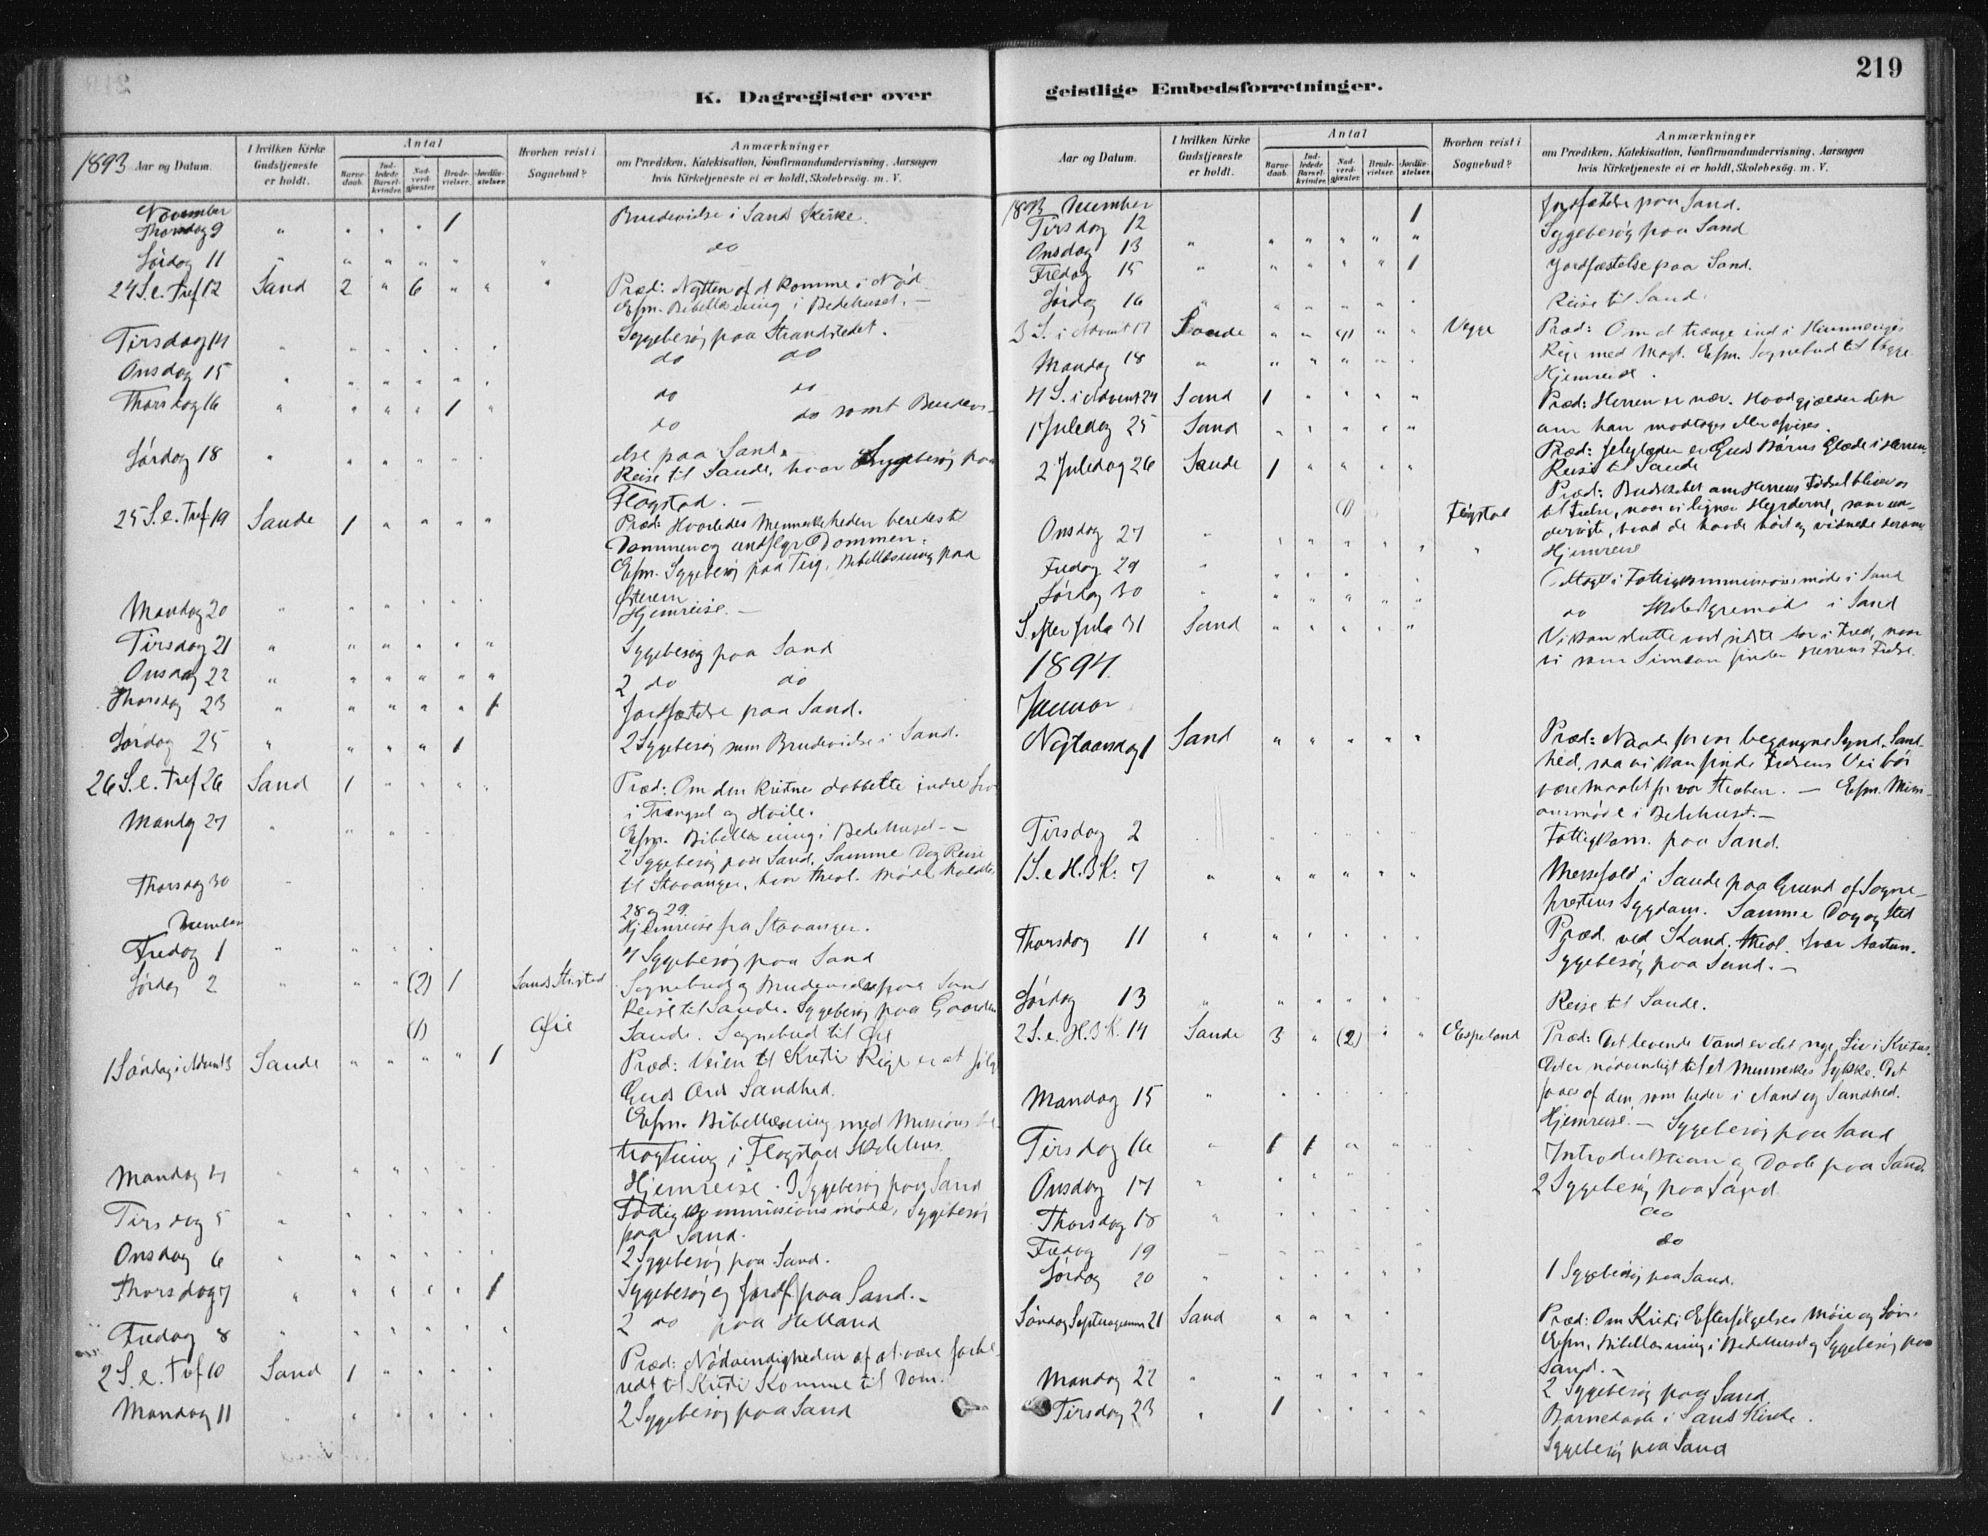 219
K. Dagregister over
geistlige Embedsforretninger.
1893 Aar og Datum.
I hvilken Kirke Gudstjeneste er holdt.
Antal
Barnedaab.
Indledede Barselkvinder.
Nadverdgjæster.
Brudevielser.
Jordfæstelser.
Hvorhen reist i Sognebud?
Anmærkninger
om Prædiken, Katekisation, Konfirmandundervisning, Aarsagen
hvis Kirketjeneste ei er holdt, Skolebesøg. m. V.
November
Thorsdag 9 " " " " 1 Brudevielse i Sands Kirke.
Lørdag 11 " " " " " " do
24 S. e. Tref 12 Sand 2 " 6 " " " Præd: Nytten af at komme i Nød.
Efm. Bibellæsning i Bedehuset. —
Tirsdag 14 " " " " " " Sygebesøg paa Strandstedet.
Onsdag 15 " " " " " " do do
Thorsdag 16 " " " " 1 " do do
do do samt Brudevi-
else paa Sand.
Lørdag 18 " " " " " " Reise til Sande, hvor Sygebesøg paa
Flogstad. —
25 S. e. Tref 19 Sande 1 " " " " Præd: Hvorledes Menneskeheden beredes til
Dommen og undflyr Dommen.
Efm. Sygebesøg paa Tig. Bibellæsning paa
Mandag 20 " " " " " " Hjemreise. —
Tirsdag 21 " " " " " " Sygebesøg paa Sand
Onsdag 22 " " " " " " 2 do do
Thorsdag 23 " " " " " 1 Jordfæstelse paa Sand.
Lørdag 25 " " " " 1 2 Sygebesøg samt Brudevielse i Sand.
26 S. e. Tref 26 Sand 1 " " " " Præd: Om den kristne dobbelte indre
i Trængsel og Hvile.
Efm. Bibellæsning i Bedehuset. —
Mandag 27 " " " " 2 Sygebesøg paa Sand. Samme Dag Reise
til Stavanger, hvor theol. Møde holdtes
28 og 29.
Thorsdag 30 Hjemreise fra Stavanger.
December
Fredag 1 " " " " " 4 Sygebesøg paa Sand
Lørdag 2 " " " (2) 1 Sands Strsted Sognebud og Brudevielse paa Sand
Reise til Sande. Sygebesøg paa Gaarden
(1) Øie Sande. Sognebud til Øie
1 Søndag i Advent 3 Sande " " " " 1 Præd: Veien til Kristi Rige er at følge
Guds Ords Sandhed.
Efm. Bibellæsning med Missions be-
tragtning i Flogstad Skolehus.
Mandag 4 " " " " " Hjemreise. 3 Sygebesøg paa Sand
Tirsdag 5 " " " " " Fattigkommissionsmøde, Sygebesøg
paa Sand.
Onsdag 6 " " " " " 2 Sygebesøg paa Sand.
Thorsdag 7 " " " " " 1 Sygebesøg og Jordf. paa Sand. —
Fredag 8 " " " " " " 2 do paa Helland
2 S. e. 10 Sand 1 " " " " Præd: Nødvendigheden af at være forbe-
redt til Kristi Komme til Dom.
Mandag 11 " " " " " " 2 Sygebesøg paa Sand
Aar og Datum.
I hvilken Kirke Gudstjeneste er holdt.
Antal
Barnedaab.
Indledede Barselkvinder.
Nadverdgjæster.
Brudevielser.
Jordfæstelser.
Hvorhen reist i Sognebud?
Anmærkninger
om Prædiken, Katekisation, Konfirmandundervisning, Aarsagen
hvis Kirketjeneste ei er holdt, Skolebesøg. m. V.
1893 December
Tirsdag 12 1 Jordfæstelse paa Sand.
Onsdag 13 " " " " " " Sygebesøg paa Sand
Fredag 15 " " " " " 1 Jordfæstelse paa Sand.
Lørdag 16 " " " " " " Reise til Sand.
3 S. i Advent 17 Sande " " (1) " " Vegge Præd: Om at trænge ind i Himmeriges
Rige med Magt. Efm. Sognebud til Vegge
Mandag 18 " " " " " " Hjemreise.
4 S. i Advent 24 Sand 1 " " " " Præd: Herren er nær. Hvad gjælder det
om han modtages eller afvises.
1 Juledag 25 Sand " " " " " Præd: Juleglæden er Guds Børns Glæde i Herren
Reise til Sande
2 Juledag 26 Sande 1 " " " " Præd: Budskabet om Herrens Fødsel bliver os
(1) Flogstad til Frelse, naar vi ligner Hyrderne, som un-
dersøgte, hvad de havde hørt og vidnede derom
Onsdag 27 " " " " " " Hjemreise
Fredag 29 " " " " " Deltaget i Fattigkommissionsmøde i Sand
Lørdag 30 " " " " " " do Skolestyremøde i Sand
S. efter Jul 31 Sand " " " " " Vi kan slutte vort sidste Aar i Fred, naar
vi som Simeon finder Herrens Frelse.
1894
Januar
Nytaarsdag 1 Sand " " " " " Præd: Naade for vor begangne Synd, Sand-
hed, saa vi kan finde Fredsens Vei bør
være Maalet for vor Stræben. — Efm. Missi-
onsmøde i Bedehuset. —
Tirsdag 2 Fattigkom. paa Sand.
1 S. e. H. 3 K. 7 " " " " " " Messefald i Sande paa Grund af Sogne-
præstens Sygdom. Samme Dag og Sted
Præd. ved Kand. theol. Ivar Aartun.
Thorsdag 11 " " " " " " Sygebesøg paa Sand. —
Lørdag 13 " " " " " " Reise til Sande.
2 S. e. H. 3 K. 14 Sande 3 " (2) " " Espeland Præd: Det levende Vand er det nye Liv i Kristus.
Det er nødvendigt til et Menneskes Lykke. Det
faaes af den, som beder i Aand og Sandhed.
Mandag 15 " " " " " " Hjemreise. — Sygebesøg paa Sand
Tirsdag 16 " 1 1 " " " Introduktion og Daab paa Sand
Onsdag 17 " " " " " 2 Sygebesøg paa Sand
Thorsdag 18 " " " " " do
Fredag 19 " " " " " do
Lørdag 20 " " " " " " 1 Sygebesøg paa Sand.
Søndag Septuagesima 21 Sand " " " " Præd: Om Kristi Efterfølgelses Møie og Løn.
Efm. Bibellæsning i Bedehuset og Sygebesøg paa
Sand. —
Mandag 22 " " " " " " 2 Sygebesøg paa Sand
Tirsdag 23 " 1 " " " " Barnedaab i Sands Kirke.
Sygebesøg paa Sand